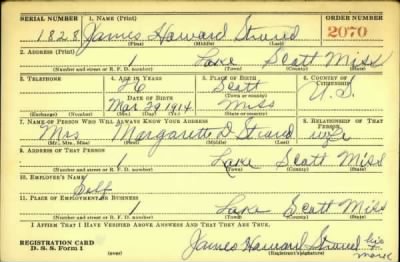 SERIAL NUMBER 1. NAME (Print) ORDER NUMBER
1828 James Howard 2070
(First) (Middle) (Last)
2. ADDRESS (Print)
1 Lake Scott Miss
(Number and street or R. F. D. number) (Town) (County) (State)
3. TELEPHONE 4. AGE IN YEARS 5. PLACE OF BIRTH 6. COUNTRY OF CITIZENSHIP
26 Scott U. S.
DATE OF BIRTH (Town or county)
Mar 29 1914 Miss
(Exchange) (Number) (Mo.) (Day) (Yr.) (State or country)
7. NAME OF PERSON WHO WILL ALWAYS KNOW YOUR ADDRESS 8. RELATIONSHIP OF THAT PERSON
Mrs Margarette D wife
(Mr., Mrs., Miss) (First) (Middle) (Last)
9. ADDRESS OF THAT PERSON
1 Lake Scott Miss
(Number and street or R. F. D. number) (Town) (County) (State)
10. EMPLOYER'S NAME
Self
11. PLACE OF EMPLOYMENT OR BUSINESS
1 Lake Scott Miss
(Number and street or R. F. D. number) (Town) (County) (State)
I AFFIRM THAT I HAVE VERIFIED ABOVE ANSWERS AND THAT THEY ARE TRUE.
REGISTRATION CARD James Howard his
D. S. S. Form 1 (over) (Registrant's signature) mark